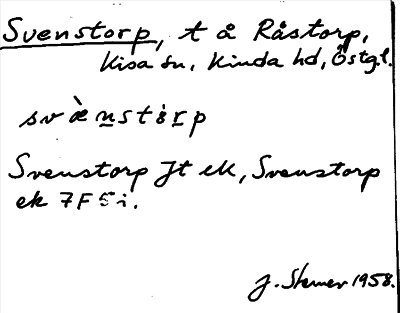 Svenstorp, t å Råstorp,
Kisa sn, Kinda hd, Östgl.
svæ̀n̲stòr̲p
Svenstorp Jt ek, Svenstorp
ek 7F 5i.
J. Sterner 1958.